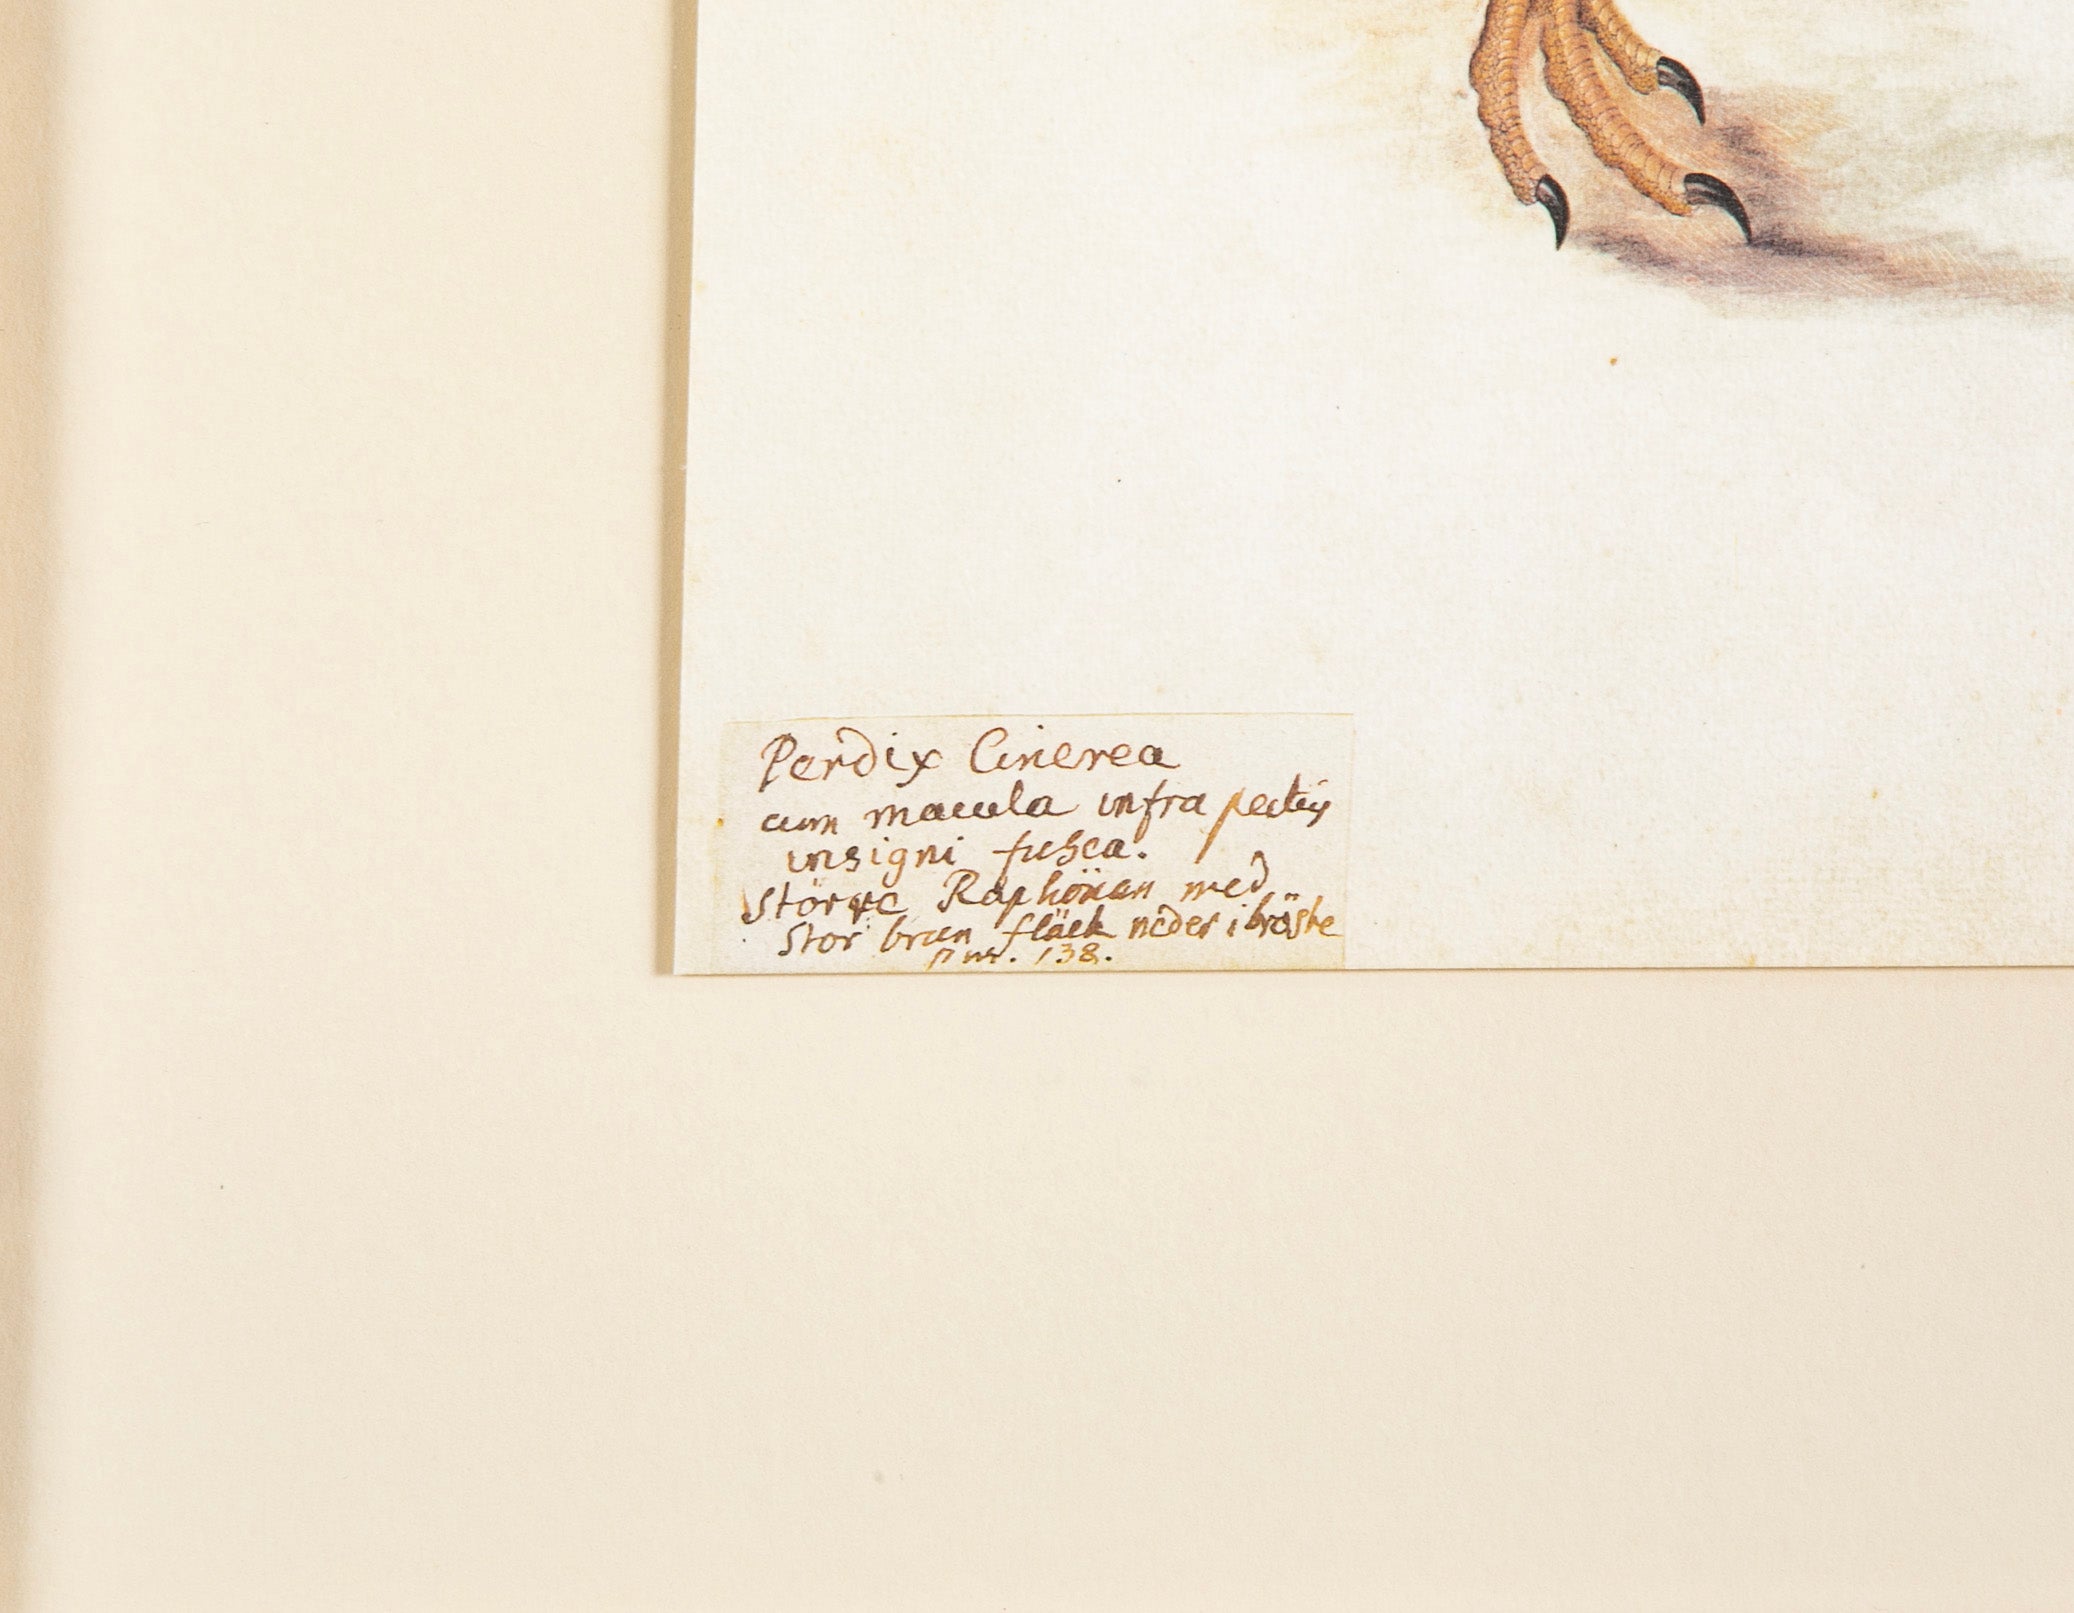 Perdix Cinerea
cum macula infra pectus
insigni fusca.
Störrre Raphönan med
Stor brun fläck neder i bröste
nur. 138.